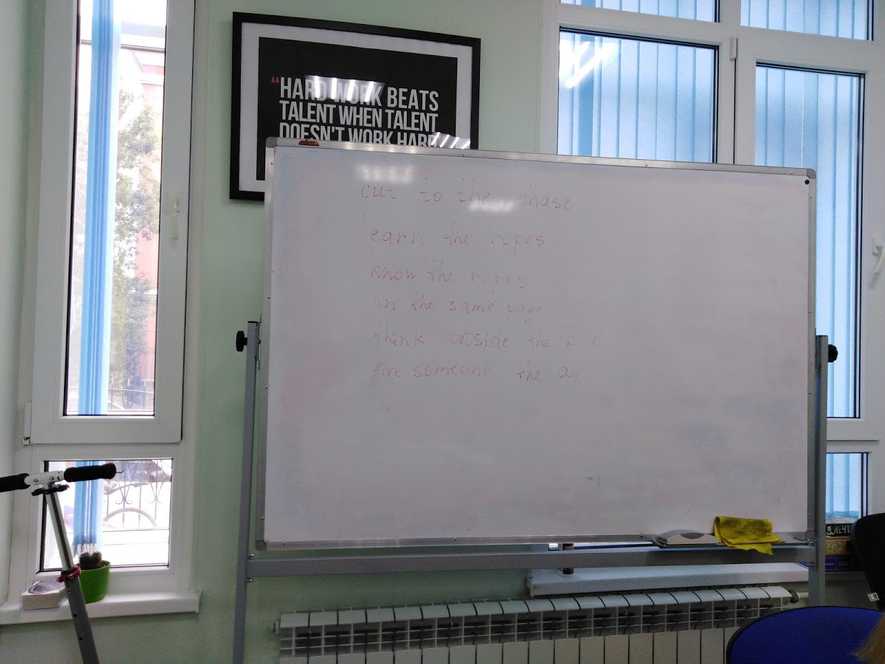 “HARD WORK BEATS
TALENT WHEN TALENT
DOESN'T WORK HARD
cut to the chase
learn the ropes
know the ropes
in the same
think outside the
someone the